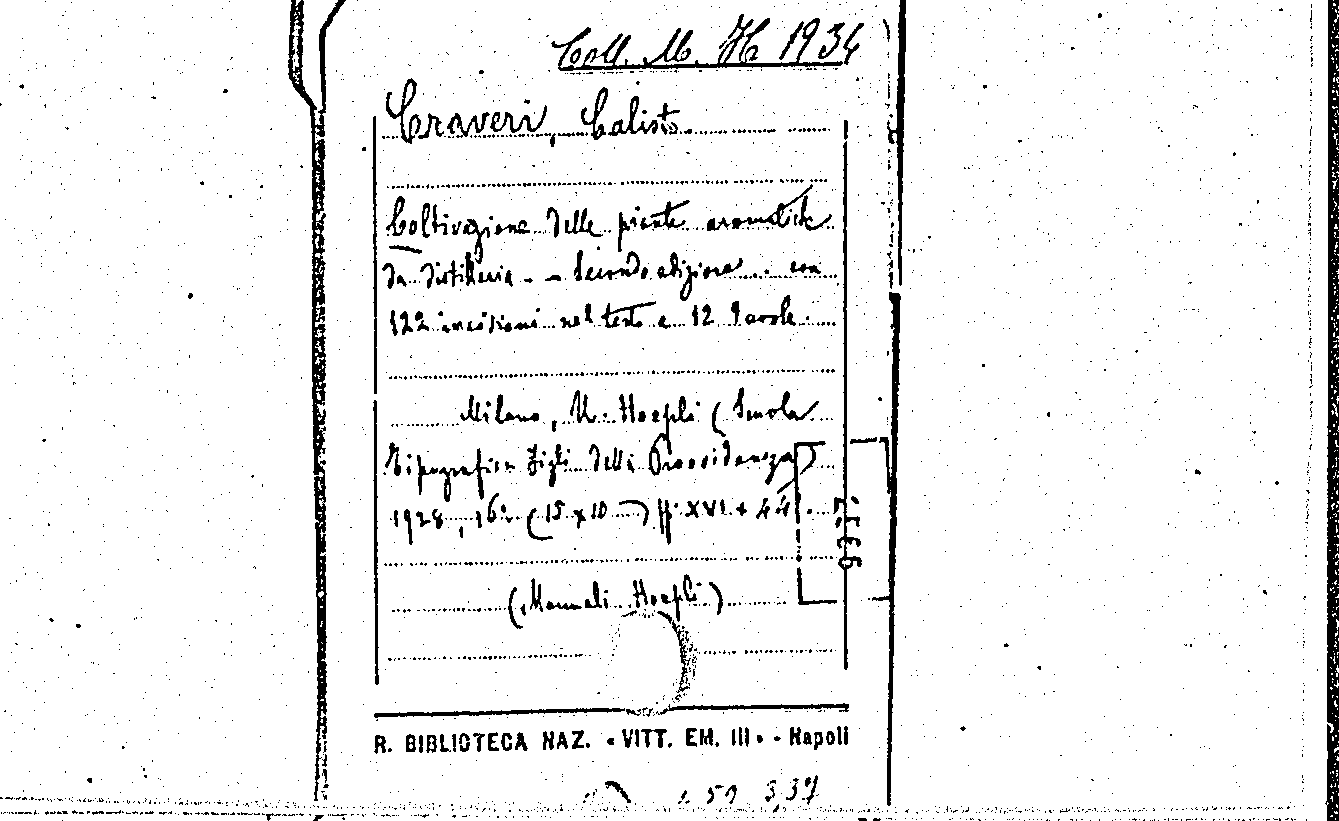 Coll. M. H 1934
Craveri, Calisto
Coltivazione delle piante aromatiche
da distilleria - - Seconda edizione.. con
122 incisioni nel testo e 12 Tavole.
Milano, U. Hoepli (Scuola
Tipografica Figli della Provvidenza)
1928, 16° (15 x 10) pp. XVI +
(Manuali Hoepli)
R. BIBLIOTECA NAZ. « VITT. EM. III » - Napoli